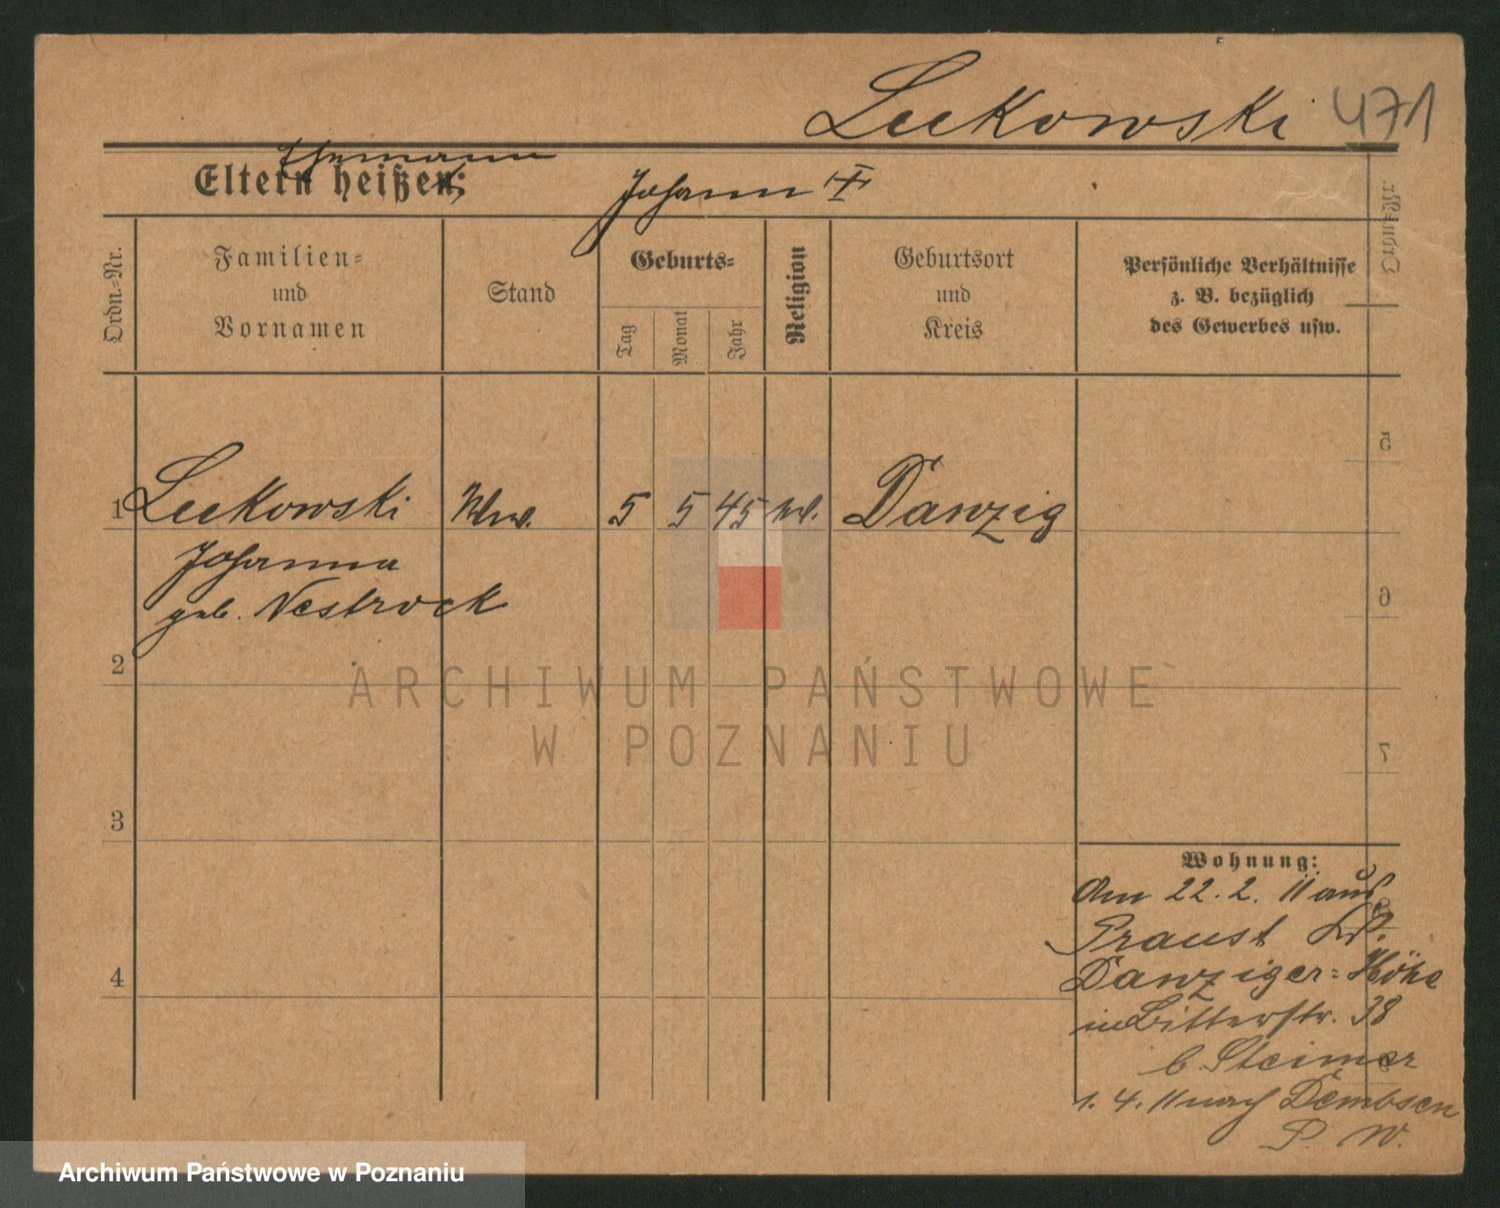 Luckowski 471
Ehemann
Eltern heißen: Johann
Ordn.-Nr.
Familien-
und
Vornamen
Stand
Geburts-
Tag
Monat
Jahr
Religion
Geburtsort
und
Kreis
Persönliche Verhältnisse
z. B. bezüglich
des Gewerbes usw.
1 Luckowski Ww. 5 5 45 Danzig
Johanna
geb. Nestrock
2
3
4
5
6
7
Wohnung:
Am 22. 2. 11 aus
Praust Kr.
Danziger-Höhe
in Bitterstr. 38
b. Steimer
1. 4. 11 nach Dembsen
P. W.
ARCHIWUM PAŃSTWOWE
W POZNANIU
Archiwum Państwowe w Poznaniu